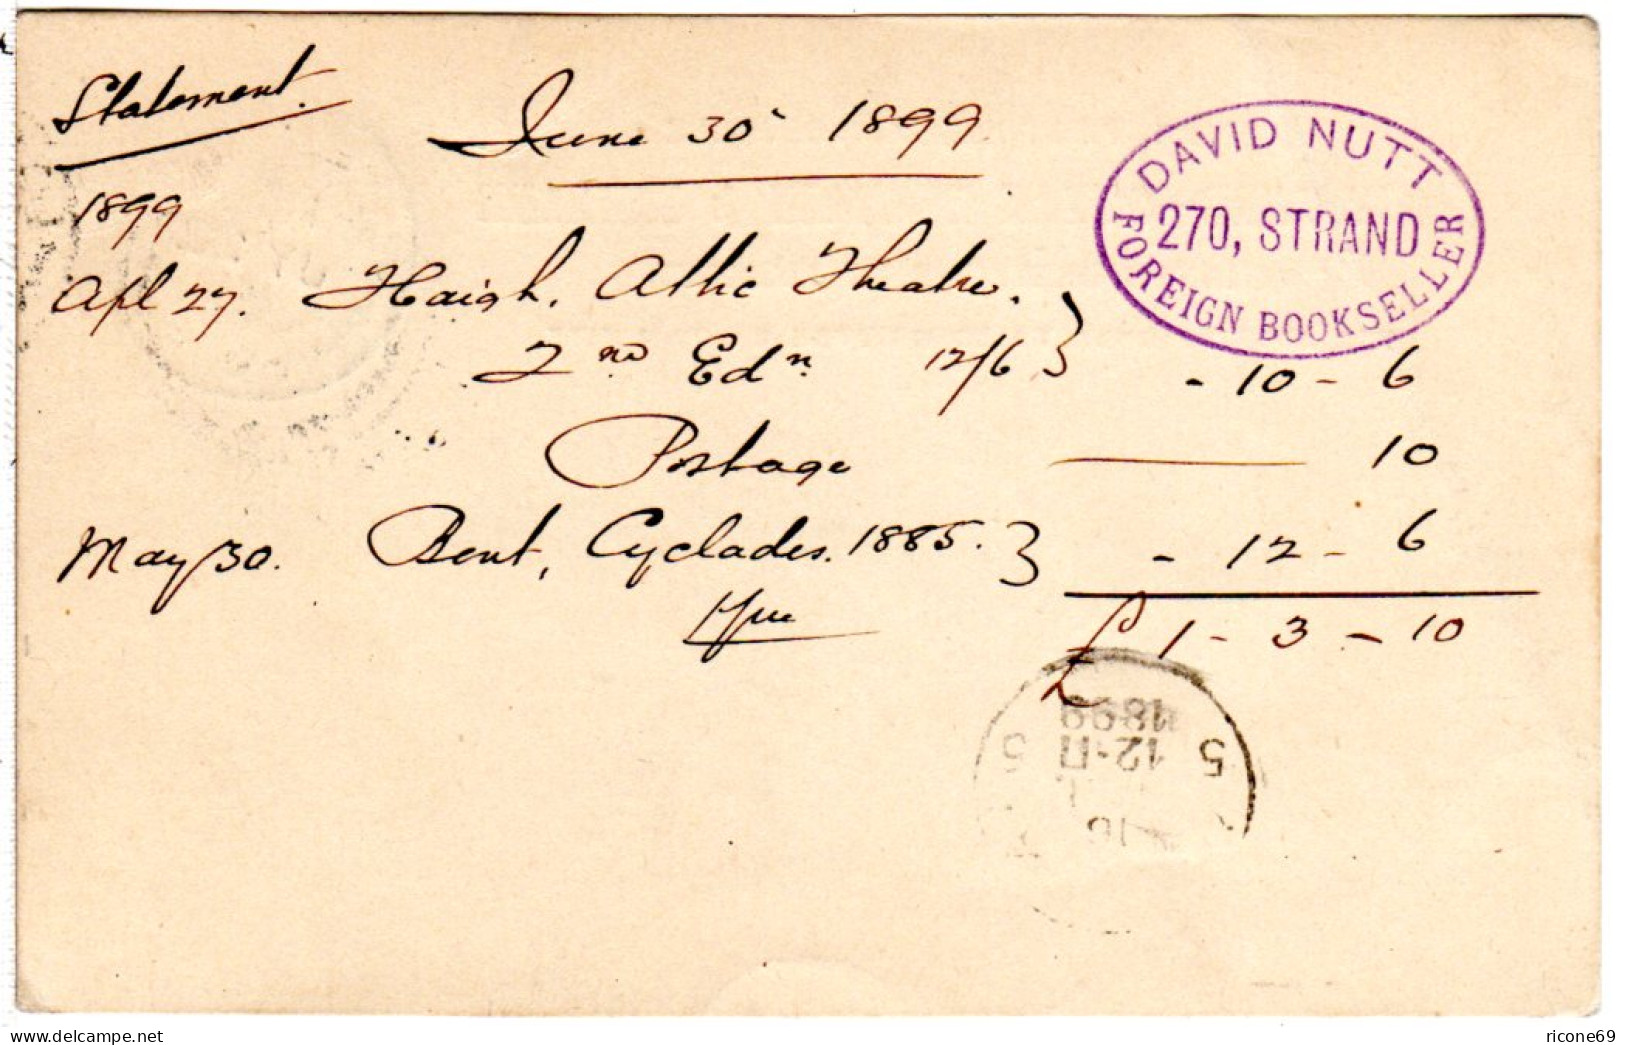 Statement.
June 30 1899
DAVID NUTT
270, STRAND
FOREIGN BOOKSELLER
1899
Apl 27. Haigh. Attic Theatre.
2nd Edn 12/6 } - 10 - 6
Postage — 10
May 30. Bent, Cyclades. 1885. } - 12 - 6
£ 1 - 3 - 10
1899
12·
5 5
16
www.delcampe.net
ricone69